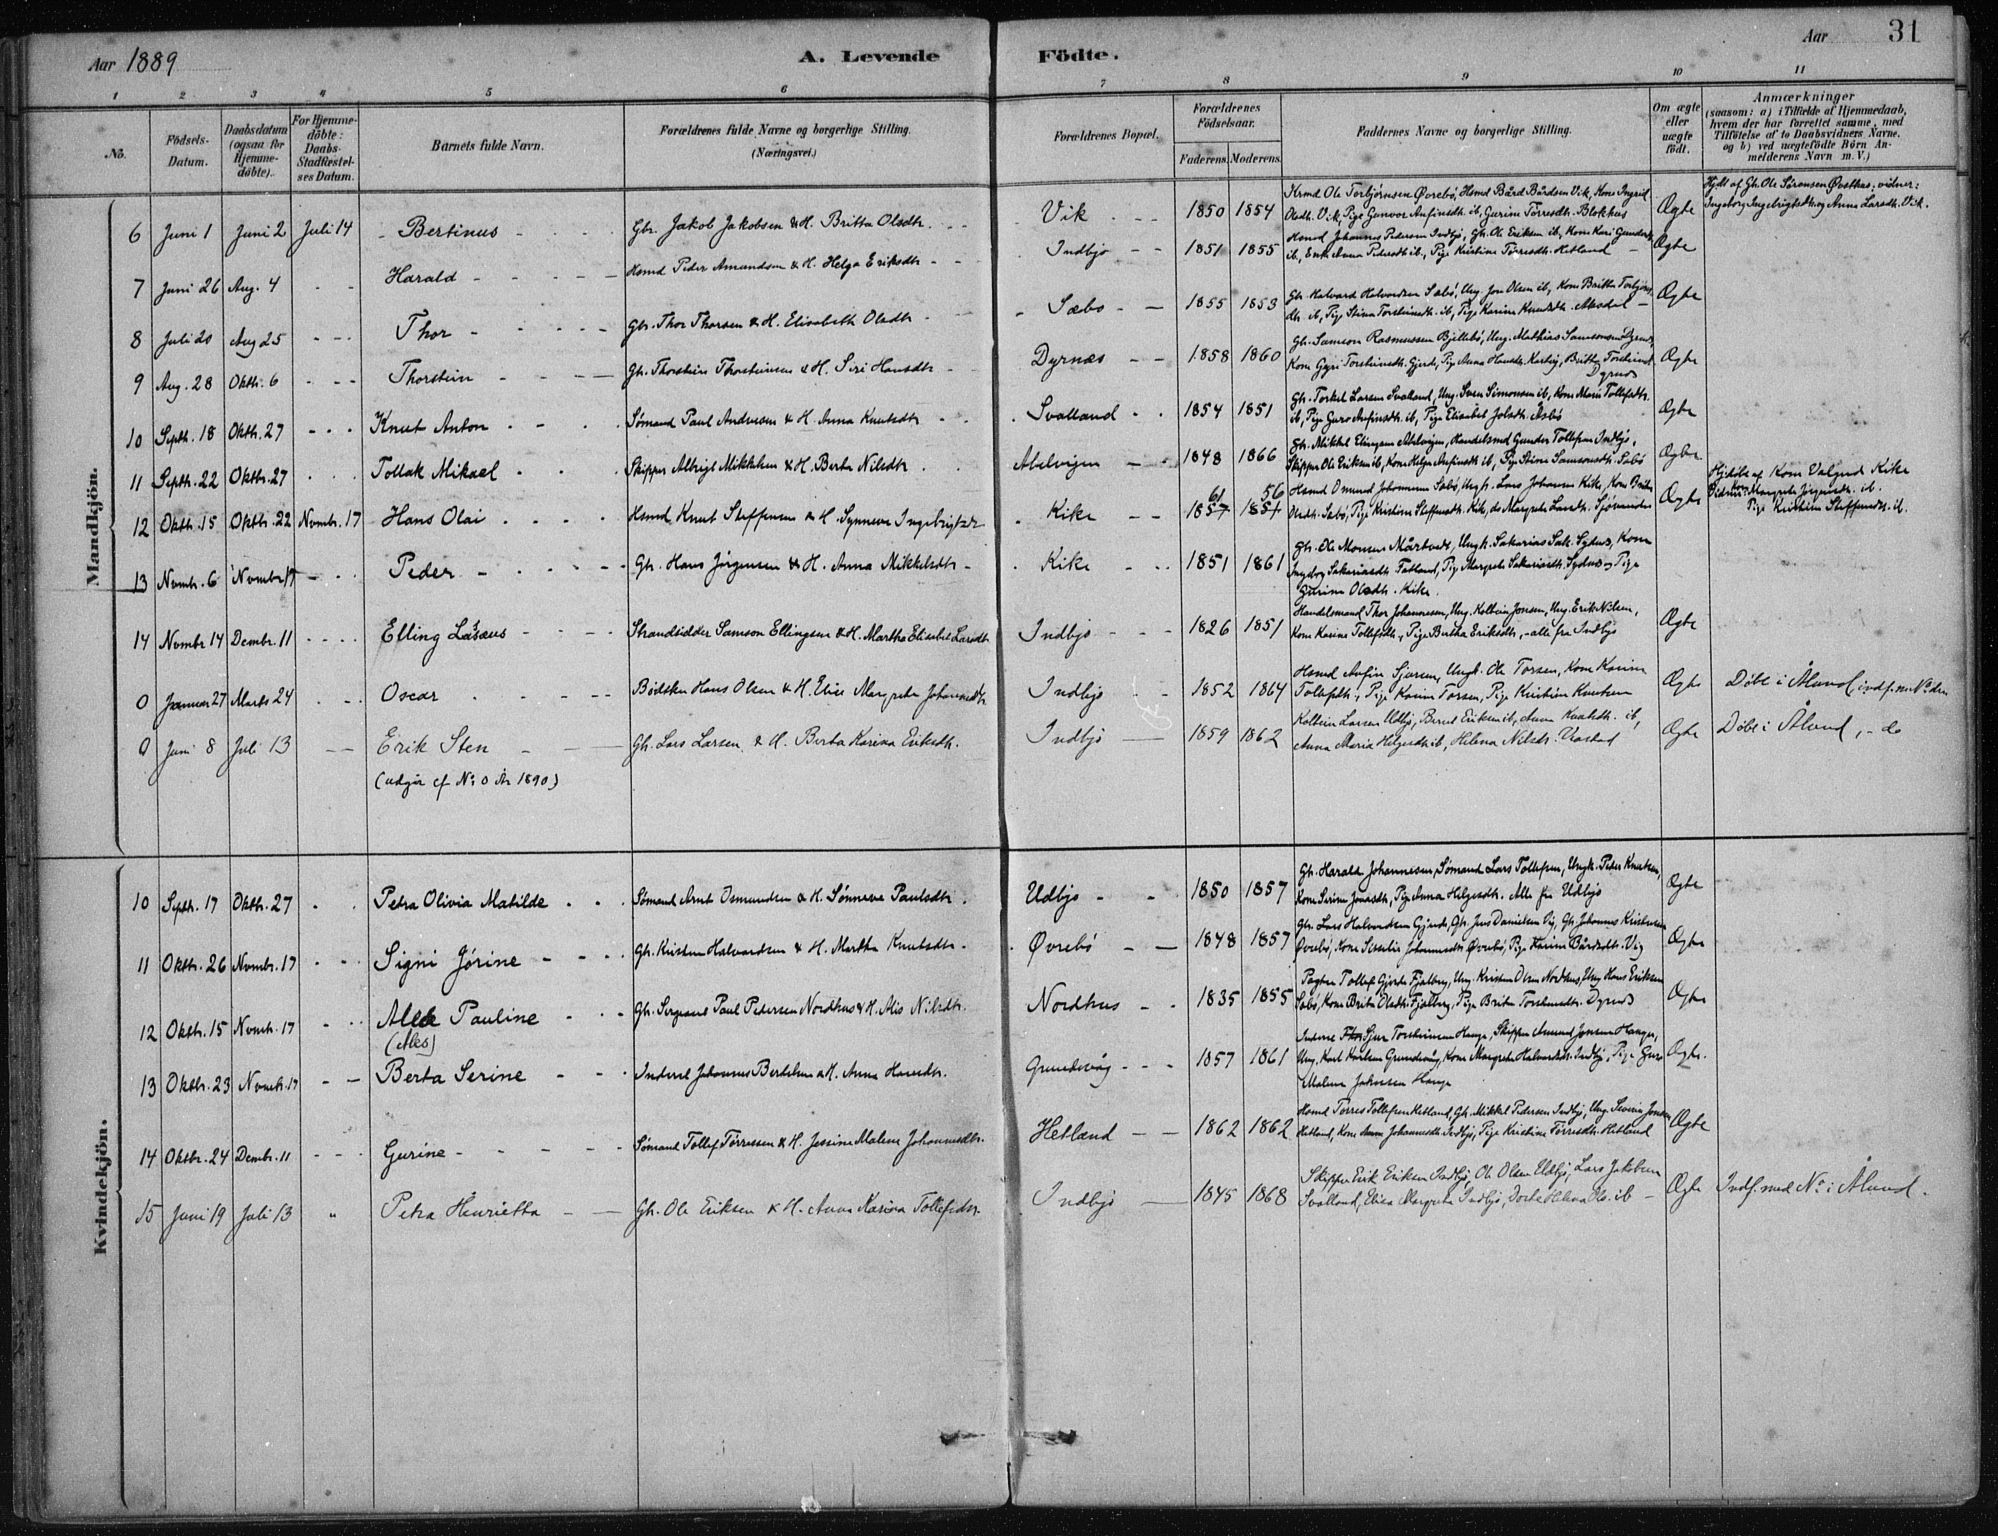 Aar 1889 A. Levende Födte. Aar 31
1 2 3 4 5 6 7 8 9 10 11
No. Födsels-Datum. Daabsdatum (ogsaa for Hjemme-döbte). For Hjemme-döbte: Daabs-Stadfæstel-ses Datum. Barnets fulde Navn. Forældrenes fulde Navne og borgerlige Stilling. (Næringsvei.) Forældrenes Bopæl. Forældrenes Födselsaar. Faderens. Moderens. Faddernes Navne og borgerlige Stilling. Om ægte eller uægte födt. Anmærkninger (saasom: a) i Tilfælde af Hjemmedaab, hvem der har forrettet samme, med Tilföielse af to Daabsvidners Navne. og b) ved uægtefödte Börn An-melderens Navn m. V.)
Mandkjön.
6 Juni 1 Juni 2 Juli 14 Bertinus Gbr. Jakob Jakobsen & H. Britta Olsdtr. Vik 1850 1854 Krmd Ole Torbjørnsen Øvrebø, Hsmd Bård Bårdsen Vik, Kone Ingrid Olsdtr. Vik, Pige Gunvor Anfinsdtr. ib, Gurine Tørresdtr. Blokhus Ægte Hjdt af Gbr. Ole Sørensen Østhus; vidner: Ingeborg Ingebrigtsdtr og Anna Larsdtr. Vik.
7 Juni 26 Aug. 4 Harald Hsmd Peder Amundsen & H. Helga Eriksdtr Indbjo 1851 1855 Hsmd Johannes Pedersen Indbjo, Gbr. Ole Eriksen ib, Kone Kari Gundersdtr ib, Enke Anna Pedersdtr ib, Pige Kristine Tørresdtr. Hetland Ægte
8 Juli 20 Aug 25 Thor Gbr. Thor Thorsen & H. Elisabeth Olsdtr Sæbo 1855 1853 Gbr. Halvard Halvardsen Sæbø, Ung. Jon Olsen ib, Kone Britta Torbjørnsdtr ib, Pige Stina Torsteinsdtr. ib, Pige Karine Knudsdtr. Aksdal Ægte
9 Aug. 28 Oktbr. 6 Thorstein Gbr. Thorstein Thorsteinsen & H. Siri Hansdtr Dyrnæs 1858 1860 Gbr. Samson Rasmussen Bjellebø, Ung. Mathias Samsonsen Dyrnes, Kone Gyri Torsteinsdtr. Gjerde, Pige Anna Hansdtr. Britta Torsteinsdtr Dyrnes Ægte
10 Septbr. 18 Oktbr. 27 Knut Anton Sømand Paul Andersen & H. Anna Knutsdtr Svalland 1854 1851 Gbr. Torkel Larsen Svalland, Ung. Sven Simonsen ib, Kone Mari Tollefsdtr ib, Pige Guro Anfinsdtr ib, Pige Elisabet Jolsdtr. Åsbø Ægte
11 Septbr. 22 Oktbr. 27 Tollak Mikael Skipper Albrigt Mikkelsen & H. Berta Nilsdtr Abelvigen 1848 1866 Gbr. Mikkel Elingsen Abelvigen, Handelsmd Gunder Tollefsen Indbjo, Skipper Ole Eriksen ib, Kone Helga Anfinsdtr ib, Pige Stine Samsonsdtr. Sæbø Ægte
12 Oktbr. 15 Oktbr. 22 Novmbr. 17 Hans Olai Hsmd Knut Steffensen & H. Synneva Ingebrigtsdtr Kike 61 1857 56 1851 Hsmd Omund Johannesen Sæbø, Ungk. Lars Johansen Kike, Kone Brita Olsdtr. Sæbø, Pige Kristine Steffensdtr. Kike, do Margreta Larsdtr. Ægte Hjdøbt af Kone Valgerd Kike Vidner: Kone Margreta Jörgensdtr. ib. Pige Kristine Steffensdtr. ib.
13 Novmbr. 6 Novmbr 17 Peder Gbr. Hans Jörgensen & H. Anna Mikkelsdtr Kike 1851 1861 Gbr. Ole Monsen Mårtveit, Ungk. Sakarias Sak. Sydnes, Kone Ingeborg Sakariasdtr. Fatland, Pige Margreta Sakariasdtr. Sydnes og Pige Gurine Olsdtr. Kike. Ægte
14 Novmbr 14 Decmbr. 11 Elling Lasæus Strandsidder Samson Ellingsen & H. Martha Elisabet Larsdtr Indbjo 1826 1851 Handelsmand Thor Johannesen, Ung. Kolbein Jonsen, Ung. Erik Nilsen, Kone Karine Tollefsdtr, Pige Bertha Eriksdtr, - alle fra Indbjo Ægte
0 Januar 27 Marts 24 Oscar Bødker Hans Olsen & H. Elise Margreta Johannesdtr Indbjo 1852 1864 Hsmd Anfin Sjursen, Ungk. Ole Torsen, Kone Karine Tollefsdtr., Pige Karine Torsen, Pige Kristine Knutsen Ægte Döbt i Ålund, indf. m. No der
0 Juni 8 Juli 13 Erik Sten Gbr. Lars Larsen & H. Berta Karina Eriksdtr. Indbjo 1859 1862 Kolbein Larsen Udbjo, Bernt Eriksen ib, Anna Knutsdtr. ib, Anna Maria Helgesdtr ib, Helena Nilsdtr. Ægte Döbt i Ålund, - do
(udgår cf No: 0 År 1890)
Kvindekjön.
10 Septbr. 17 Oktbr. 27 Petra Olivia Matilde Sømand Arnt Osmundsen & H. Sønneva Paulsdtr. Udbjo 1850 1857 Gbr. Harald Johannesen, Sømand Lars Tollefsen, Ungk. Peder Knutsen, Kone Serine Jonasdtr, Pige Anna Helgesdtr. Alle fra Udbjo Ægte
11 Oktbr. 26 Novmbr. 17 Signi Jörine Gbr. Kristen Halvardsen & H. Martha Knutsdtr Øvrebö 1848 1857 Gbr. Lars Halvardsen Gjerde, Gbr. Jens Danielsen Vig, Gbr. Johannes Kristensen Øvrebø, Kone Sisselia Johannesdtr. Øvrebø, Pige Karine Bårdsdtr. Vig Ægte
12 Oktbr. 15 Novmbr. 17 Alede Pauline (Ales) Gbr. Sergeant Paul Pedersen Nordhus & H. Alis Nilsdtr. Nordhus 1835 1855 Pagter Tollef Gjerde Fjelberg, Ung Kristen Olsen Nordhus, Ung Hans Eriksen Sæbø, Kone Brita Olsdtr. Fjelberg, Pige Brita Torsteinsdtr. Dyrnes Ægte
13 Oktbr. 23 Novmbr. 17 Berta Serine Inderst Johannes Bertelsen & H. Anna Hansdtr. Grunnevåg 1857 1861 Inderst Sjur Torsteinsen Hauge, Skipper Amund Jonsen Hauge, Ung. Karl Karlsen Grunnevåg, Kone Margreta Halvardsdtr. Indbjo, Pige Guro Malene Jakobsen Hauge Ægte.
14 Oktbr. 24 Decmbr. 11 Gurine Sømand Tollef Tørresen & H. Jessine Malene Johannesdtr. Hetland 1862 1862 Hsmd Torres Tollefsen Hetland, Gbr. Mikkel Pedersen Indbjo, Ung. Severin Jonsen Hetland, Kone Anna Johannesdtr. Indbjo, Pige Kristine Tørresdtr. Hetland Ægte
15 Juni 19 Juli 13 " Petra Henrietha Gbr. Ole Eriksen & H. Anna Karina Tollefsdtr. Indbjo 1845 1868 Skipper Erik Eriksen Indbjo, Ole Olsen Udbjo, Lars Jakobsen Svalland, Elisa Margreta Indbjo, Dorte Helena Ols. ib Ægte Indf. med No i Ålund.